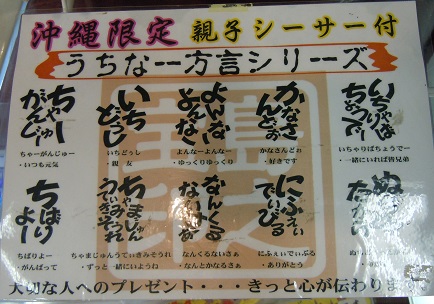 沖縄限定 親子シーサー付
うちなー方言シリーズ
いちゃりばちょーでー
・いちゃりばちょうでー
・一緒にいれば皆兄弟
かなさんどぉ
・かなさんどぉ
・好きです
よんなーよんなー
・よんなーよんなー
・ゆっくりゆっくり
いちどぅし
・いちどぅし
・親友
ちゃーがんじゅー
・ちゃーがんじゅー
・いつも元気
にふぇーでーびる
・にふぇぃでぃぶる
・ありがとう
なんくるないさぁ
・なんくるないさぁ
・なんとかなるさぁ
ちゃまじゅんうぃきみそうれ
・ちゃまじゅんうてぃきみそうれ
・ずっと一緒にいようね
ちばりよー
・ちばりよー
・がんばって
大切な人へのプレゼント・・・きっと心が伝わります